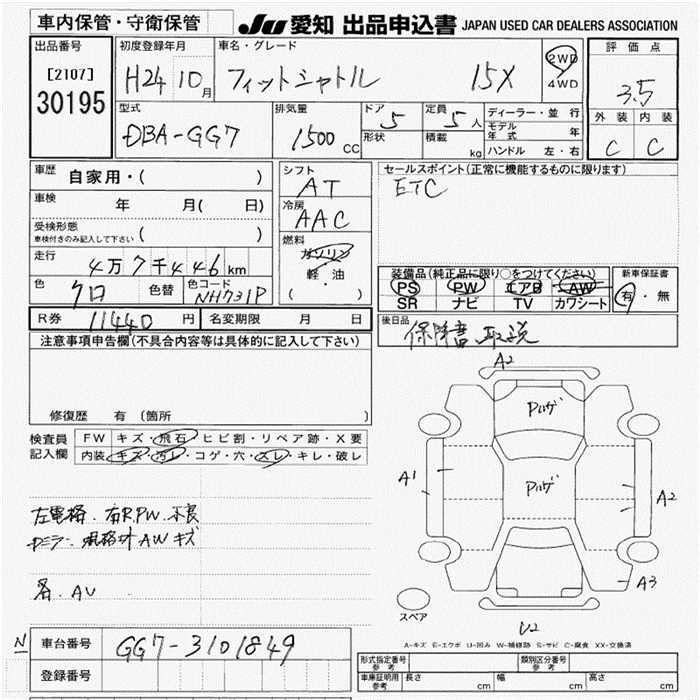 車内保管・守衛保管
JU 愛知 出品申込書 JAPAN USED CAR DEALERS ASSOCIATION
出品番号
[2107]
30195
初度登録年月
H24 10月
車名・グレード
フィットシャトル 15X
2WD
4WD
評価点
3.5
外装 内装
C C
型式
DBA-GG7
排気量
1500 CC
ドア 5
形状
定員 5人
積載 kg
ディーラー・並行
モデル年式 年
ハンドル 左・右
車歴 自家用・( )
車検 年 月( 日)
受検形態
車検付きのみ記入して下さい ( )
走行 4万7千446km
色 クロ 色替 色コード NH731P
シフト
AT
冷房
AAC
燃料
ガソリン
軽・油
( ・ )
セールスポイント(正常に機能するものに限ります)
ETC
装備品(純正品に限り○をつけてください)
PS PW エアB AW
SR ナビ TV カワシート
新車保証書
有・無
R券 11440円 名変期限 月 日
後日品
保障書 取説
注意事項申告欄(不具合内容等は具体的に記入して下さい)
修復歴 有(箇所
検査員記入欄
FW キズ・飛石・ヒビ割・リペア跡・X要
内装 キズ・汚レ・コゲ・穴・スレ・キレ・破レ
右RPW 不良
AWキズ
AU
A2
Pハゲ
Pハゲ
A1
A2
A3
U2
スペア
A-キズ E-エクボ U-凹み W-補修跡 S-サビ C-腐食 XX-交換済
N
車台番号 GG7-3101849
登録番号
形式指定番号 参考
類別区分番号 参考
車庫証明用 参考 長さ cm 幅 cm 高さ cm